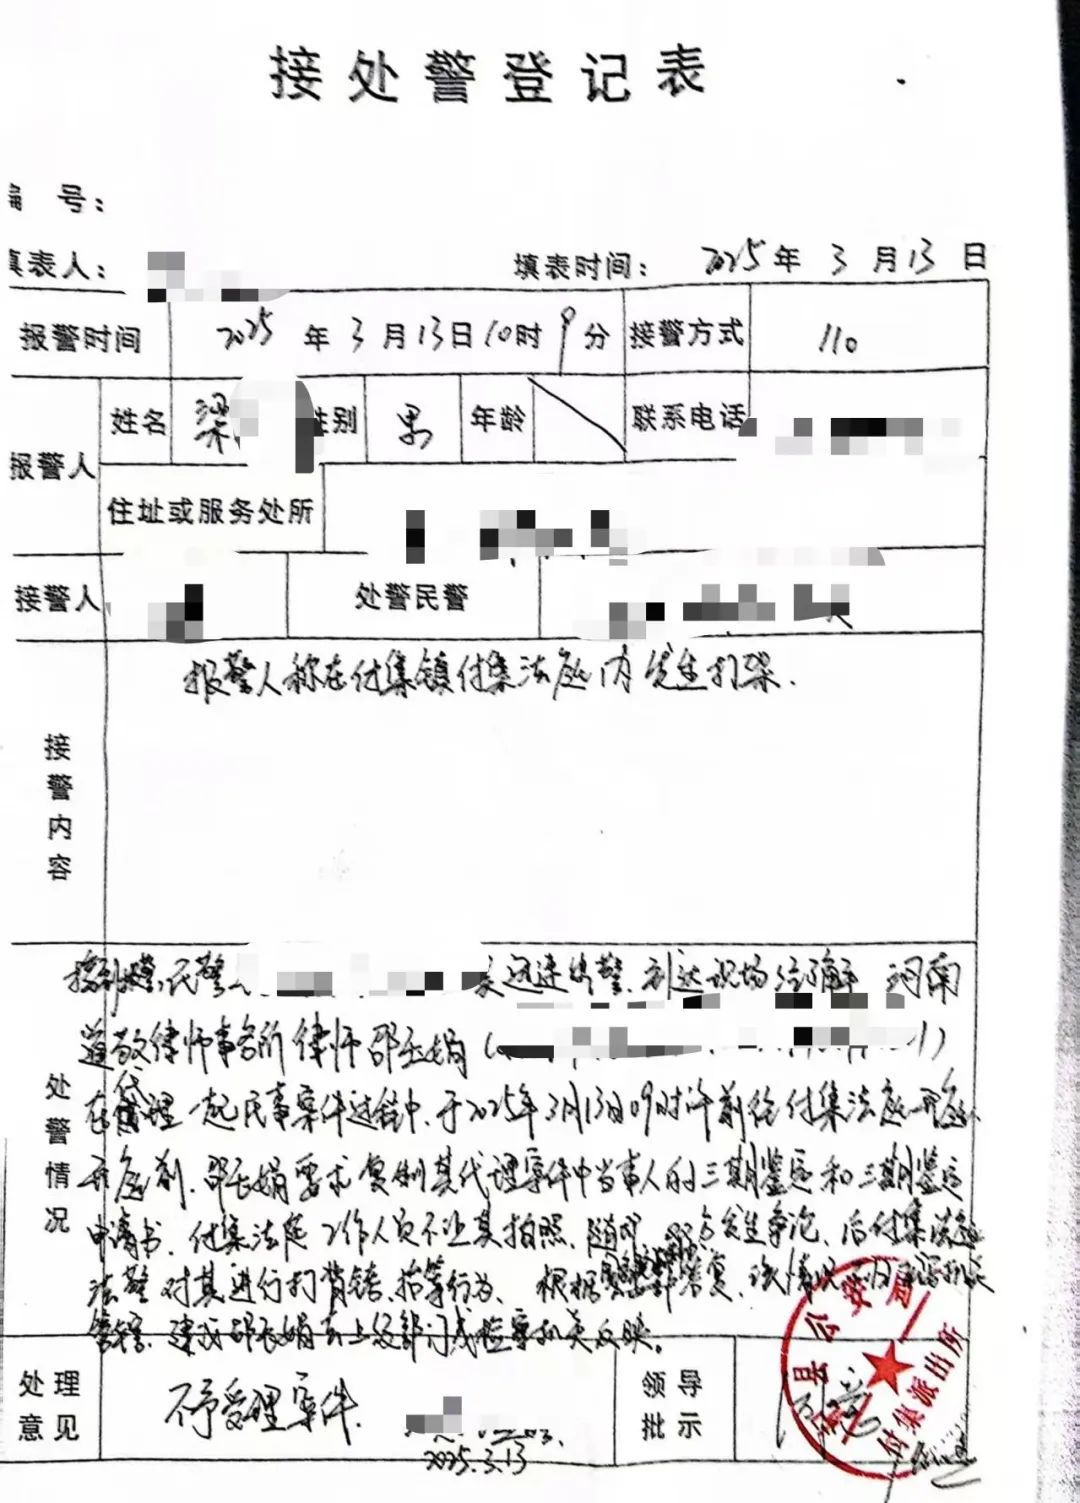 接处警登记表
编 号：
填表人： 填表时间： 2025年 3 月 13 日
报警时间 2025 年 3 月 13 日 10 时 9 分 接警方式 110
报警人 姓名 梁 性别 男 年龄 联系电话
住址或服务处所
接警人 处警民警
接警内容
报警人称在付集镇付集法庭内发生打架.
处警情况
接到报警,民警 迅速出警,到达现场经了解 河南
道敬律师事务所律师邵 娟(
在代理一起民事案件过程中,于2025年3月13日09时许前往付集法庭开庭,
开庭前,邵 娟要求复制其代理案件中当事人的三期鉴定和三期鉴定
申请书,付集法庭工作人员不让其拍照,随即,双方发生争论,后付集法庭
法警对其进行打背铐、抬等行为,根据 答复,该情况
管辖,建议邵 娟去上级部门或检察机关反映。
处理意见 不予受理案件.
2025.3.13
领导批示
县公安局
付集派出所